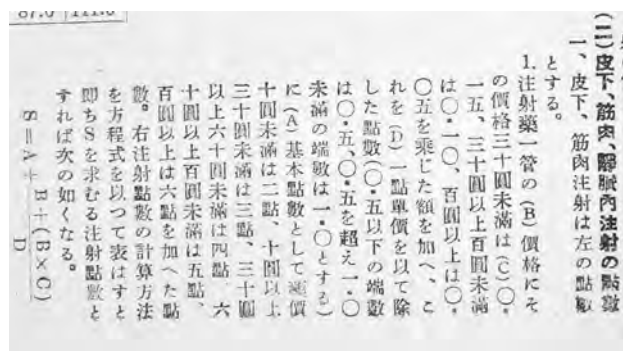 (二)皮下、筋肉、臟腑內注射の點數
一、皮下、筋肉注射は左の點數
とする。
1.注射藥一管の(B)價格にそ
の價格三十圓未滿は(C)〇・
一五、三十圓以上百圓未滿
は〇・一〇、百圓以上は〇・
〇五を乘した額を加へ、こ
れを(D)一點單價を以て除
した點數(〇・五以下の端數
は〇・五、〇・五を超え一・〇
未滿の端數は一・〇とする)
に(A)基本點數として藥價
十圓未滿は二點、十圓以上
三十圓未滿は三點、三十圓
以上六十圓未滿は四點、六
十圓以上百圓未滿は五點、
百圓以上は六點を加へた點
數。右注射點數の計算方法
を方程式を以つて表はすと
卽ちSを求むる注射點數と
すれば次の如くなる。
S=A+B+(B×C)/D
87.0 111.0